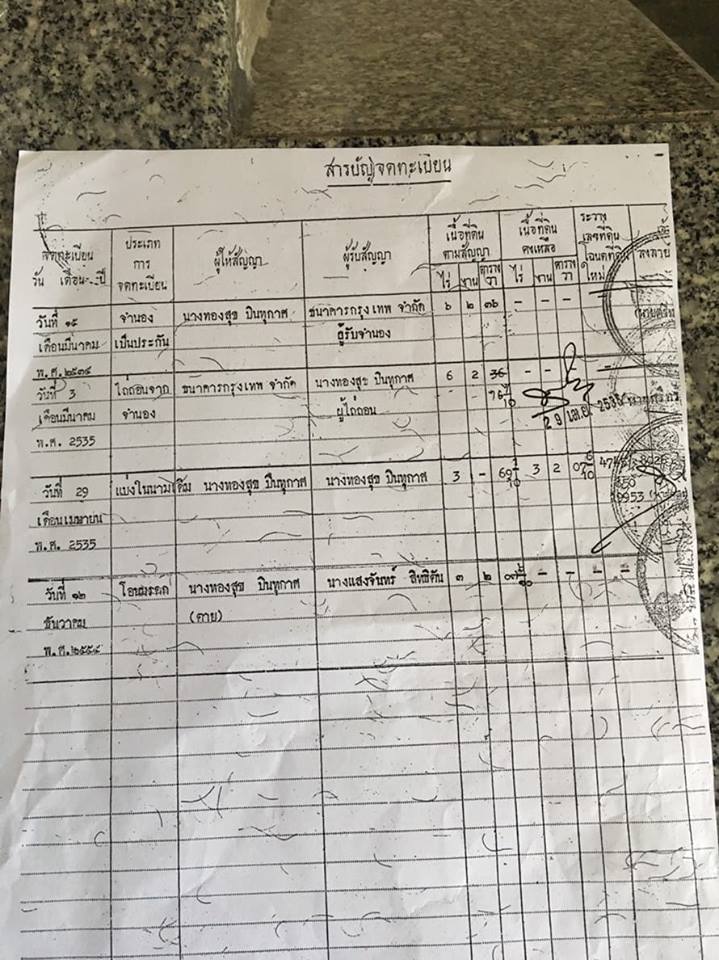 สารบัญจดทะเบียน
จดทะเบียน
วัน เดือน ปี
ประเภท
การ
จดทะเบียน
ผู้ให้สัญญา
ผู้รับสัญญา
เนื้อที่ดิน
ตามสัญญา
ไร่ งาน ตาราง
วา
เนื้อที่ดิน
คงเหลือ
ไร่ งาน ตาราง
วา
ระวาง
เลขที่ดิน
โฉนดที่ดิน
ใหม่
วันที่ ๑๕ จำนอง นางทองสุข ปินทุกาศ ธนาคารกรุงเทพ จำกัด ๖ ๒ ๓๖ - - -
เดือนมีนาคม เป็นประกัน ผู้รับจำนอง
วันที่ 3 ไถ่ถอนจาก ธนาคารกรุงเทพ จำกัด นางทองสุข ปินทุกาศ 6 2 36 - -
เดือนมีนาคม จำนอง ผู้ไถ่ถอน
พ.ศ. 2535
29 เม.ย. 2535
วันที่ 29 แบ่งในนามเดิม นางทองสุข ปินทุกาศ นางทองสุข ปินทุกาศ 3 - 69 3 2 07
เดือนเมษายน
พ.ศ. 2535
วันที่ ๑๒ โอนมรดก นางทองสุข ปินทุกาศ นางแสงจันทร์ สิทธิตัน ๓ ๒ - - - -
ธันวาคม (ตาย)
พ.ศ.๒๕๕๔